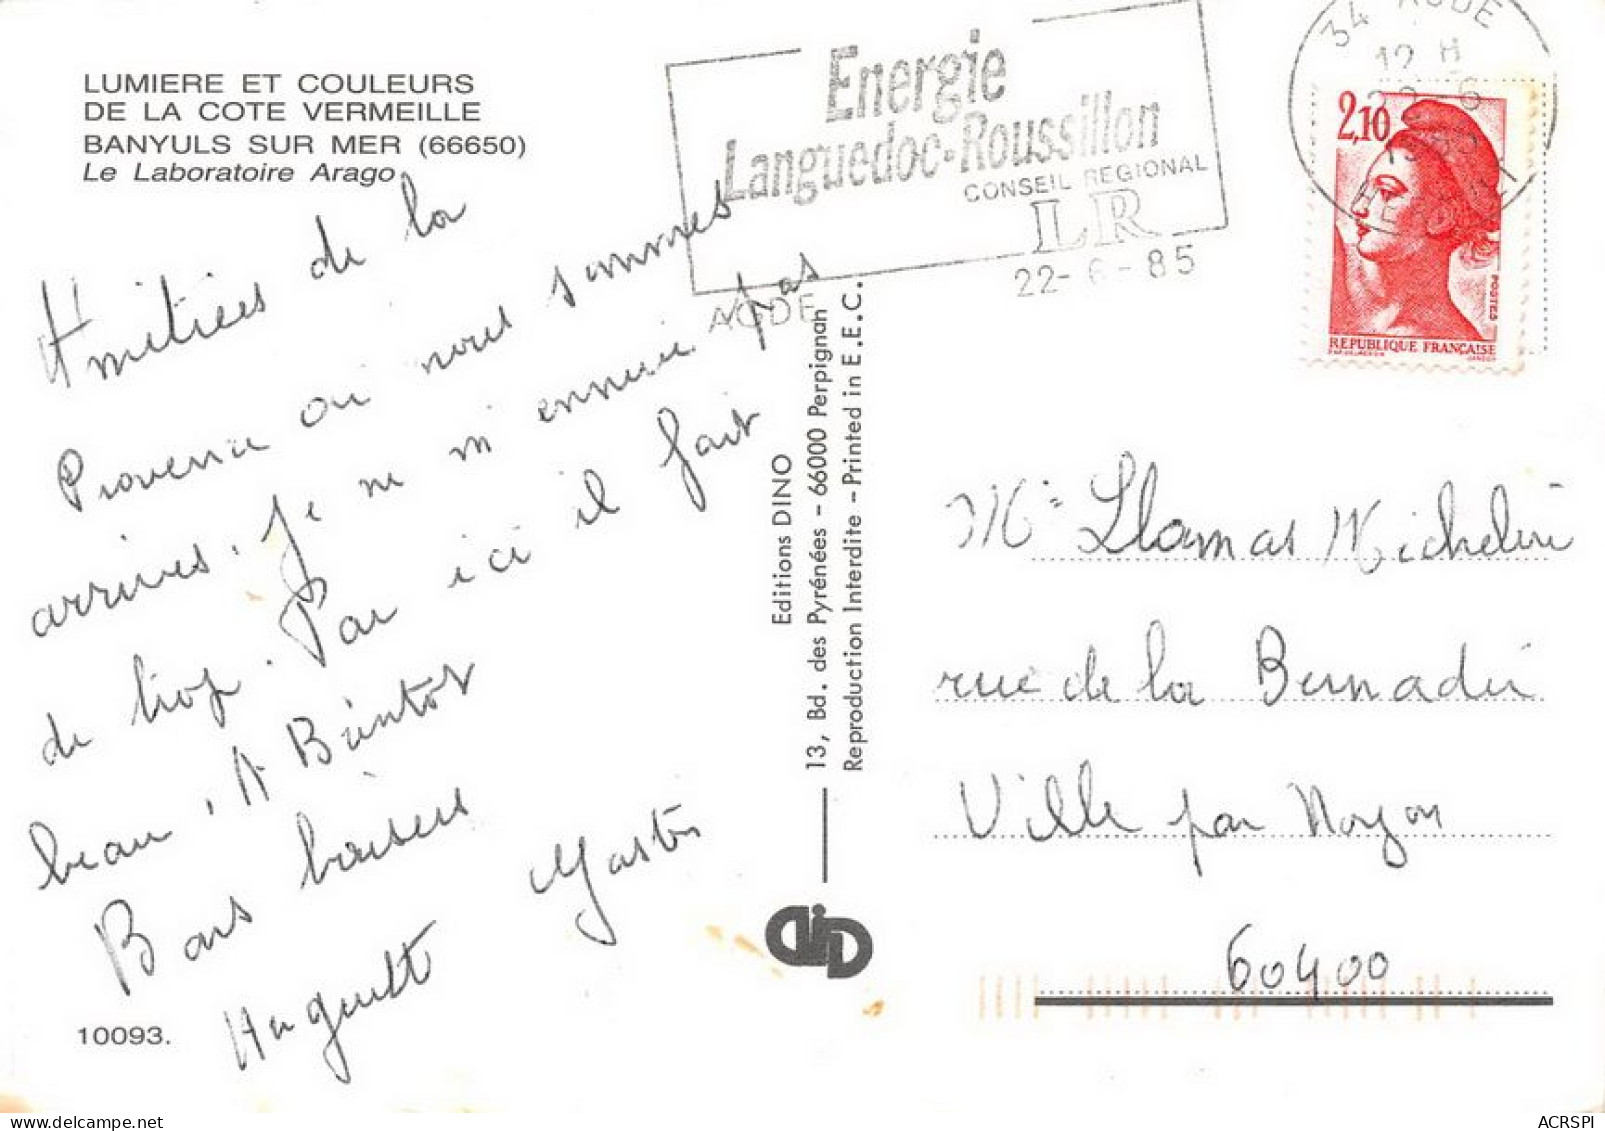 LUMIERE ET COULEURS
DE LA COTE VERMEILLE
BANYULS SUR MER (66650)
Le Laboratoire Arago
Amitiées de la
Provence ou nous sommes
arrivés. Je ne m'ennuie pas
de trop. Par ici il fait
beau, A Bientot
Bons baisers
Huguette
10093.
Energie
Languedoc-Roussillon
CONSEIL REGIONAL
LR
AGDE
22-6-85
34 AGDE
12 H
22-6
1985
HERAULT
2,10
POSTES
REPUBLIQUE FRANÇAISE
Editions DINO
13, Bd. des Pyrénées - 66000 Perpignan
Reproduction Interdite - Printed in E.E.C.
DiD
Llamas Micheline
rue de la Bernadine
Ville par Noyon
60400
ACRSPI